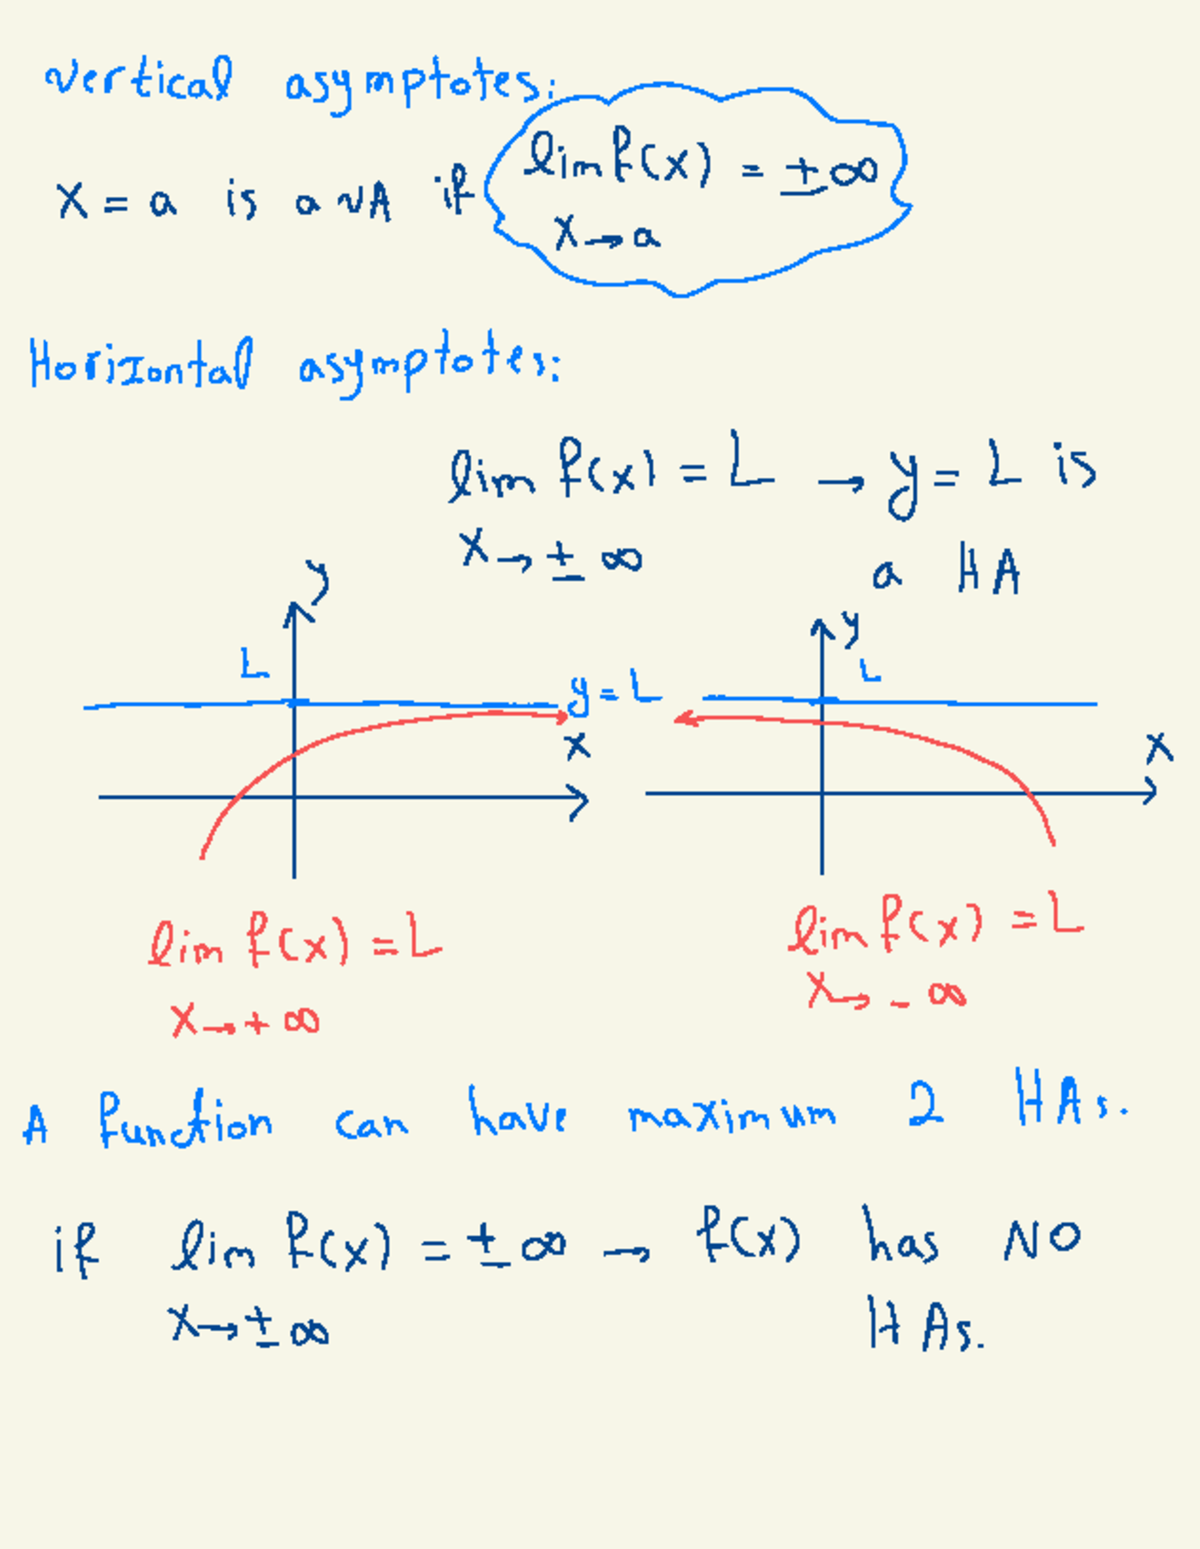 vertical asymptotes:
x = a is a VA if lim f(x) = ±∞
x→a
Horizontal asymptotes:
lim f(x) = L → y = L is
x→ ± ∞ a HA
y y
L L
y = L
x x
lim f(x) = L lim f(x) = L
x→ + ∞ x→ - ∞
A function can have maximum 2 HAs.
if lim f(x) = ± ∞ → f(x) has NO
x→ ± ∞ HAs.